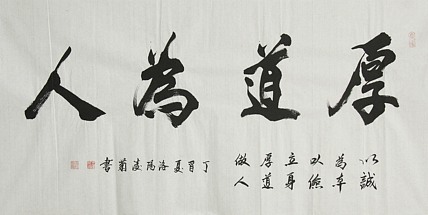 厚道為人
以誠
為本
以儉
立身
厚道
做人
丁酉夏洛陽凌書